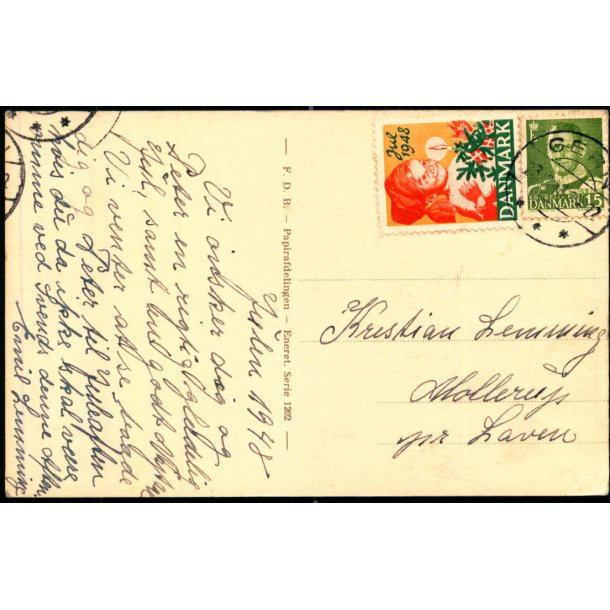 Julen 1948
Vi ønsker dig og
Peter en rigtig glædelig
Jul, samt hud godt Nytår
Vi venter at se begge
dig og Peter til Juleaften
hvis du da ikke skal være
ved Svends denne Aften
Emil Lemming
F. D. B. – Papirafdelingen – Eneret. Serie 1202
Jul 1948
DANMARK
DANMARK 15
Kristian Lemming
Mollerup
pr Laven